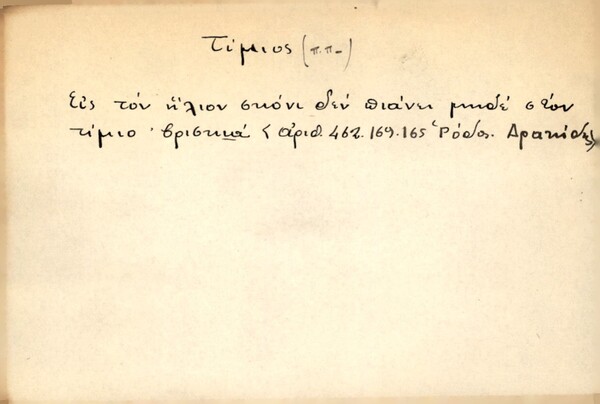 Τίμιος (π.π.-)
Εἰς τόν ἥλιον σκόνι δέν πιάνει μηδέ στόν
τίμιο · βρισικιά < ἀριθ. 462. 169. 165 Ῥόδος. Δρακίδης